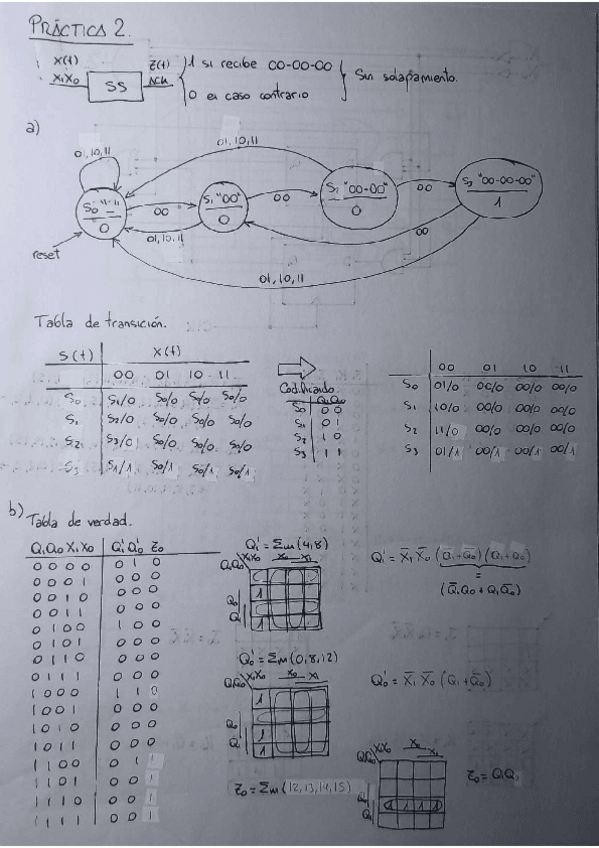 PRÁCTICA 2.
X(t)
X₁X₀
SS
Z(t)
1 si recibe 00-00-00
0 en caso contrario
Sin solapamiento.
a)
01,10,11
01,10,11
S₀ "-"
0
00
S₁ "00"
0
00
S₂ "00-00"
0
00
S₃ "00-00-00"
1
01,10,11
00
reset
01,10,11
Tabla de transición.
S(t) X(t)
00 01 10 11
S₀ S₁/0 S₀/0 S₀/0 S₀/0
S₁ S₂/0 S₀/0 S₀/0 S₀/0
S₂ S₃/0 S₀/0 S₀/0 S₀/0
S₃ S₁/1 S₀/1 S₀/1 S₀/1
Codificando
Q₁ Q₀
S₀ 0 0
S₁ 0 1
S₂ 1 0
S₃ 1 1
00 01 10 11
S₀ 01/0 00/0 00/0 00/0
S₁ 10/0 00/0 00/0 00/0
S₂ 11/0 00/0 00/0 00/0
S₃ 01/1 00/1 00/1 00/1
b) Tabla de verdad.
Q₁Q₀X₁X₀ Q₁'Q₀'Z₀
0 0 0 0 0 1 0
0 0 0 1 0 0 0
0 0 1 0 0 0 0
0 0 1 1 0 0 0
0 1 0 0 1 0 0
0 1 0 1 0 0 0
0 1 1 0 0 0 0
0 1 1 1 0 0 0
1 0 0 0 1 1 0
1 0 0 1 0 0 0
1 0 1 0 0 0 0
1 0 1 1 0 0 0
1 1 0 0 0 1 1
1 1 0 1 0 0 1
1 1 1 0 0 0 1
1 1 1 1 0 0 1
Q₁' = Σm(4,8)
Q₁Q₀ X₁X₀ X₀ X₁
Q₀
Q₁
1
1
Q₁' = X̄₁ X̄₀ (Q̄₁+Q̄₀)(Q₁+Q₀)
=
(Q̄₁Q₀ + Q₁Q̄₀)
Q₀' = Σm(0,8,12)
Q₁Q₀ X₁X₀ X₀ X₁
Q₀
Q₁
1
1
1
Q₀' = X̄₁ X̄₀ (Q₁+Q̄₀)
Z₀ = Σm(12,13,14,15)
Q₁Q₀ X₁X₀ X₀ X₁
Q₀
Q₁
1 1 1 1